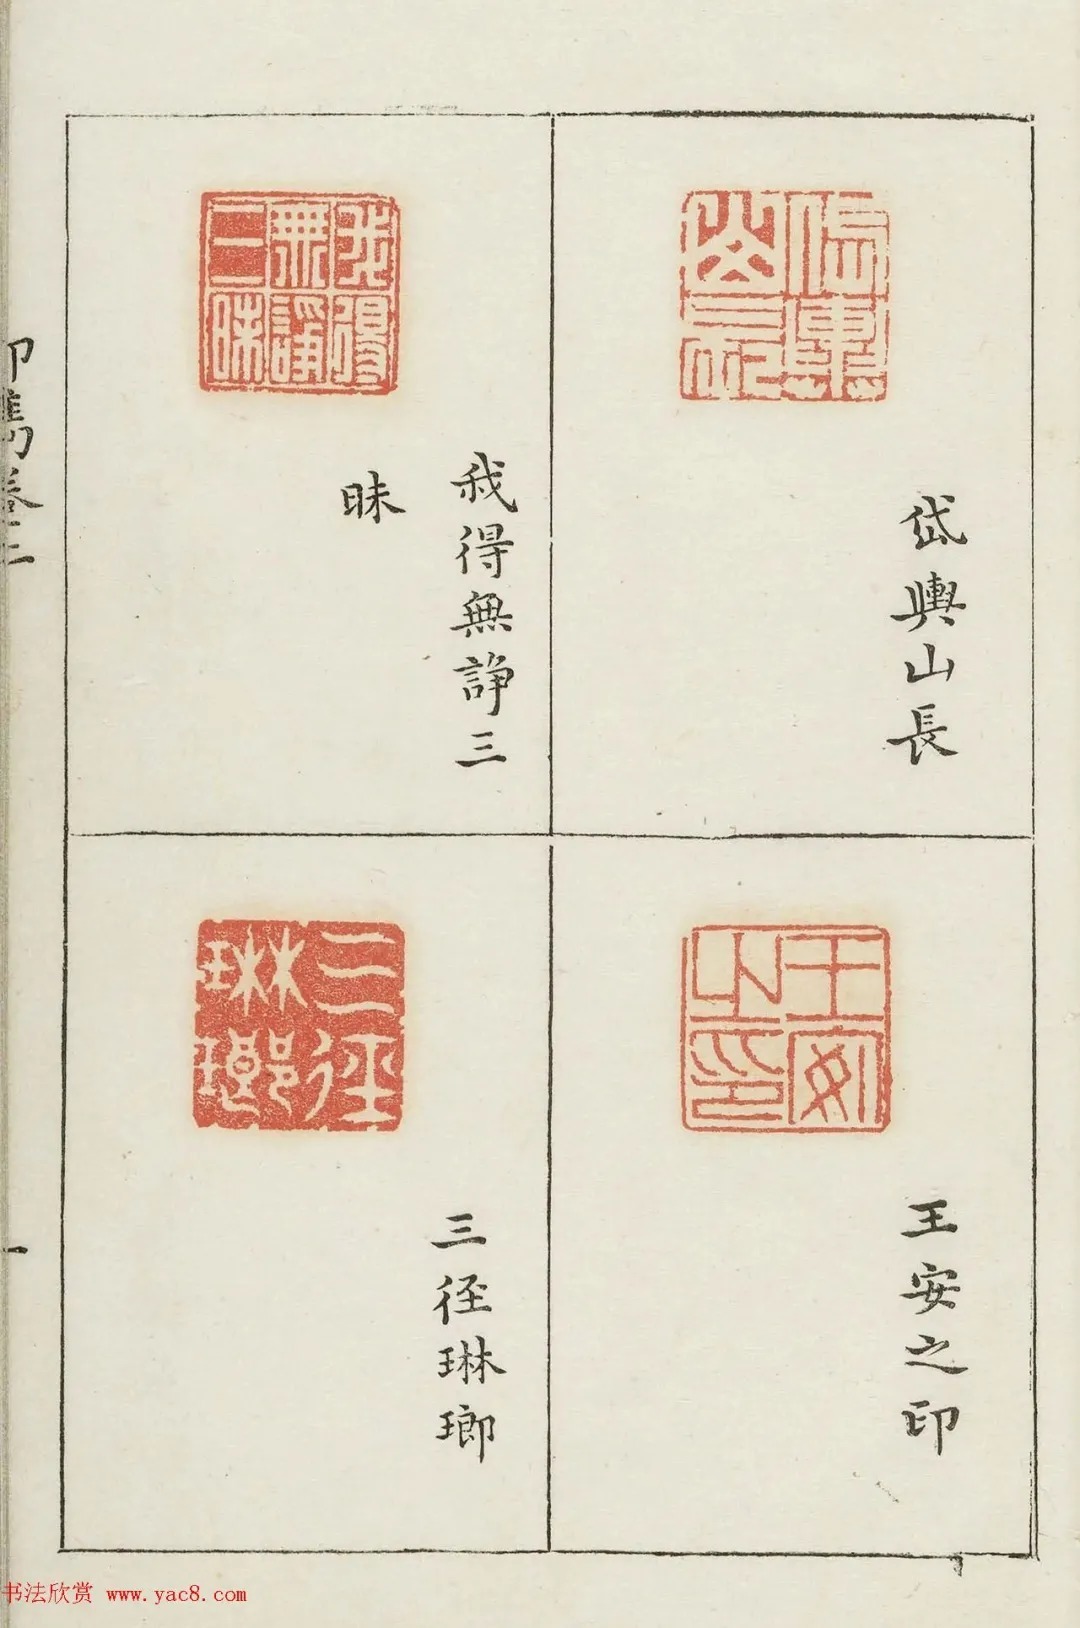 岱輿山長
我得無諍三
昧
王安之印
三徑琳瑯
印雋卷三
一
书法欣赏 www.yac8.com